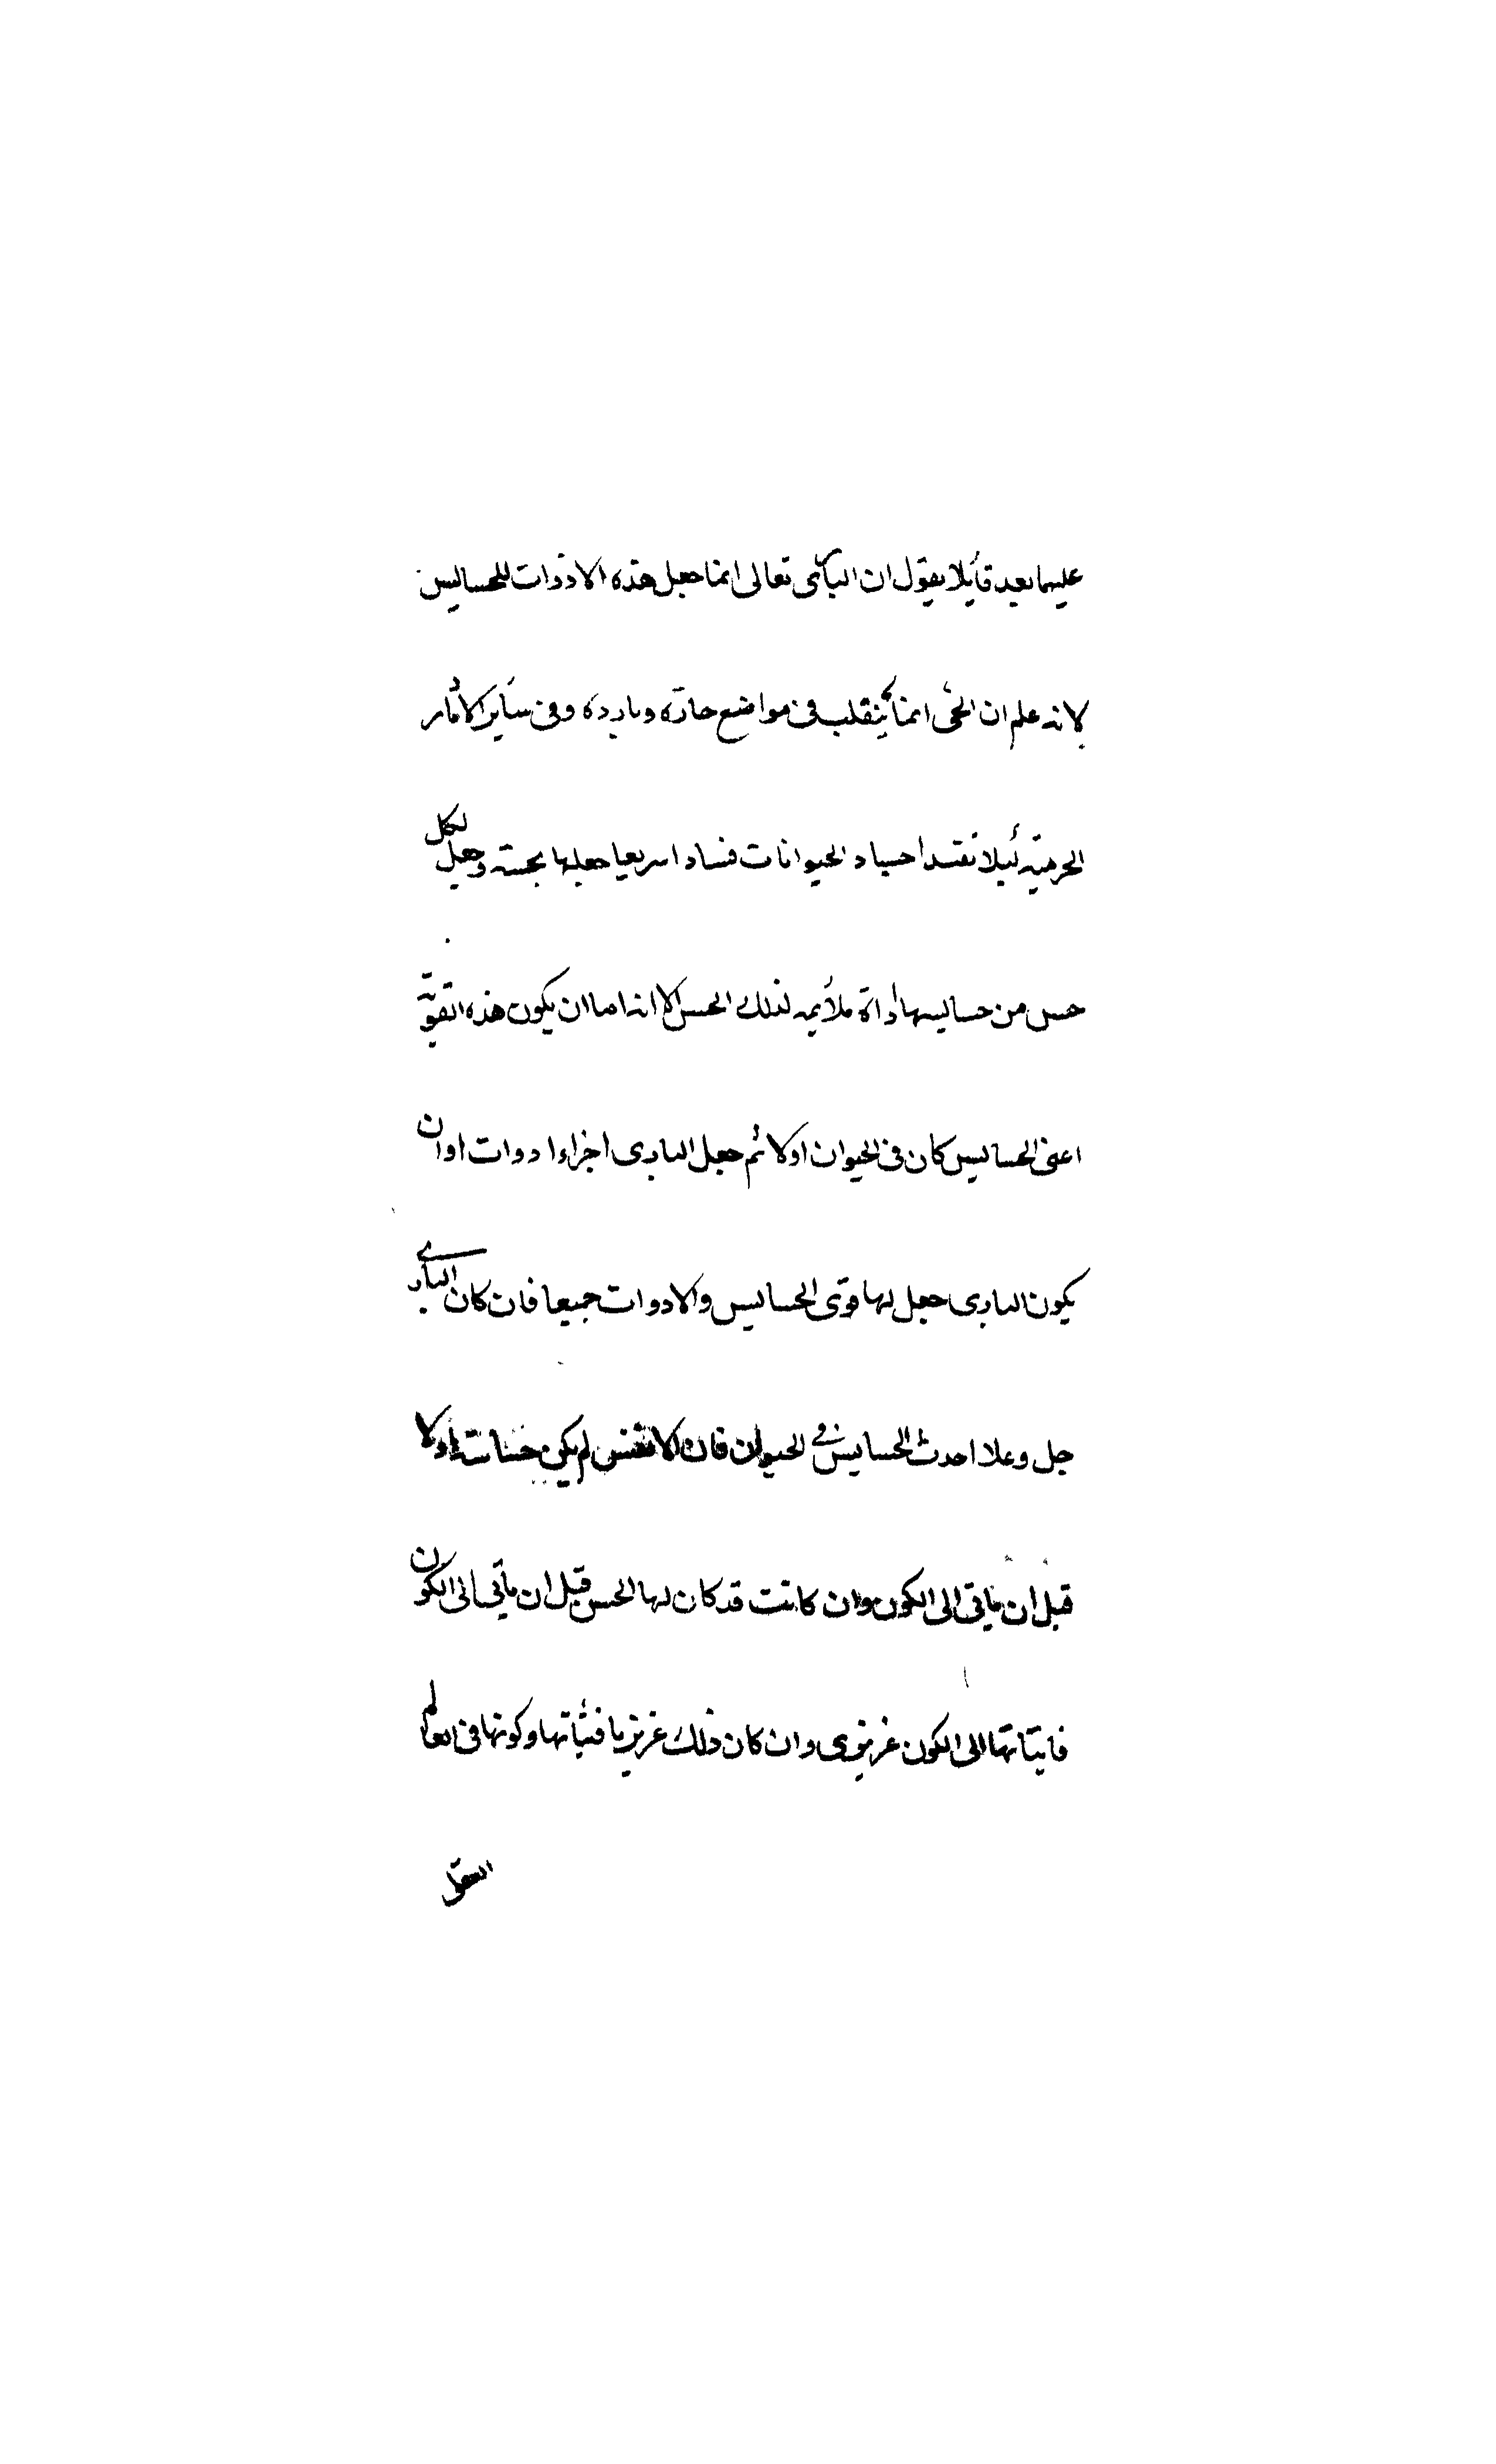 علينا بعد قايلا يقول ان البارى تعالى انما جعل هذه الادوات للحسايس
لانه علم ان الحى انما ينقلب فى مواضع حارة وباردة وفى ساير الاثار
الجرمية لئيلا تفسد اجساد الحيوانات فسادا سريعا جعلها بحسته وجعل لكل
حس من حسايسها اداة ملايمه لذلك الحس الا انه اما ان يكون هذه القوة
اعنى الحسايس كان فى الحيوان اولا ثم جعل البارى اخراء ادوات اوان
يكون البارى جعل لها قوى الحسايس والادوات جميعا فان كان البارى
جل وعلا احدث الحسايس فى الحيوان فان الانفس لم يكن حساسة اولا
قبل ان ياتى الى الكون وان كانت قد كان لها الحس قبل ان ياتى الى الكون
فايتاتها الى الكون غريزى وان كان ذلك غريزيا فثباتها وكونها فى العالم